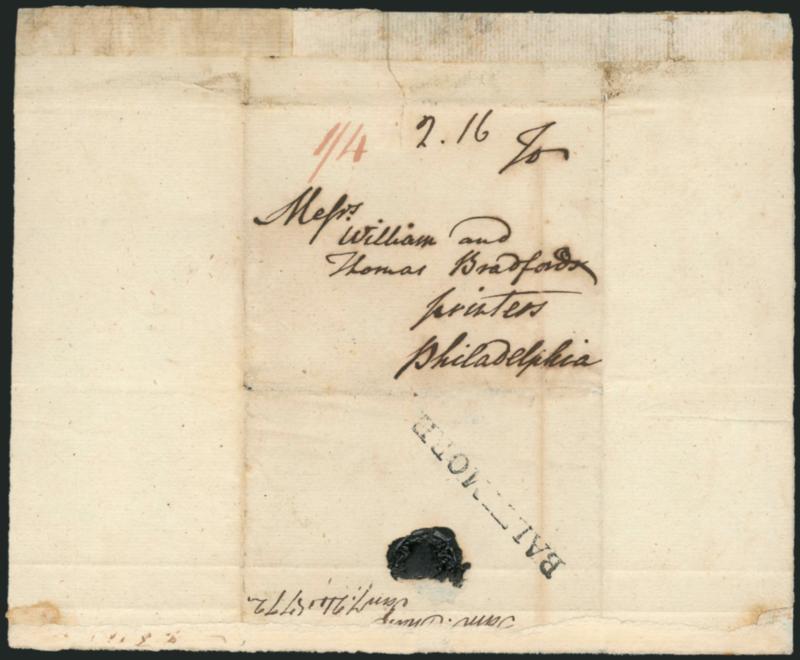 1/4
2.16 To
Messrs
William and
Thomas Bradfords
printers
Philadelphia
BALTIMORE